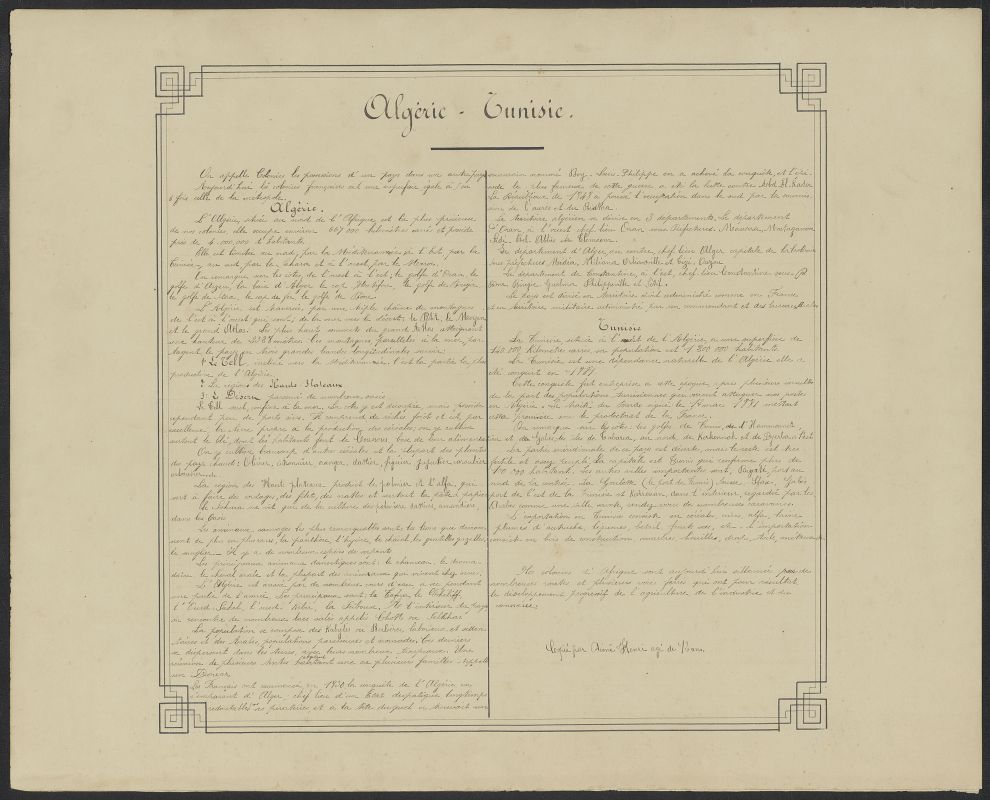 Algérie - Tunisie.
On appelle Colonies les possessions d'un pays dans un autre pays
Aujourd'hui les colonies françaises ont une superficie égale à
6 fois celle de la métropole.
Algérie.
L'Algérie, située au nord de l'Afrique, est la plus précieuse
de nos colonies, elle occupe environ 667 000 kilomètres carrés et possède
près de 4.000.000 d'habitants.
Elle est limitée au nord, par la Méditerranée, à l'Est, par la
Tunisie, au sud par le Sahara et à l'ouest, par le Maroc.
On remarque sur les côtes, de l'ouest à l'est, le golfe d'Oran, le
golfe d'Arzeu, la baie d'Alger le cap Matifou, le golfe de Bougie,
le golfe de Stora, le cap de fer, le golfe de Bône.
L'Algérie est traversée, par une triple chaîne de montagnes
de l'est à l'ouest qui sont, de la mer vers le désert: le Petit, le Moyen
et le grand Atlas. Les plus hauts sommets du grand Atlas atteignent
une hauteur de mètres. Ces montagnes, parallèles à la mer par-
tagent le pays en trois grandes bandes longitudinales savoir:
1° Le Tell incliné vers la Méditerranée. C'est la partie la plus
productive de l'Algérie.
2° La région des Hauts Plateaux
3° Le Désert parsemé de nombreux oasis
Le Tell est incliné à la mer. La côte y est découpée, mais possède
cependant peu de ports sûrs. Il comprend de riches forêts et est, par
excellence, la terre propre à la production des céréales; on y cultive
surtout le blé, dont les habitants font le Couscous, base de leur alimentation
On y cultive beaucoup d'autres céréales et la plupart des plantes
du pays chaud: Olivier, citronnier, oranger, dattier, figuier,
La région des Hauts plateaux produit le palmier et l'alfa, qui
sert à faire du cordages, des filets, des nattes et surtout la pâte à papier
le Sahara ne vit que de la culture des palmiers dattiers,
dans les Oasis.
Les animaux sauvages les plus remarquables sont: les lions qui devien-
nent de plus en plus rares, la panthère, l'hyène, le chacal, les gentilles gazelles,
le sanglier. Il y a de nombreuses espèces de serpents
Les principaux animaux domestiques sont: le chameau, le droma-
daire, le cheval arabe et la plupart des animaux qui vivent chez nous.
L'Algérie est arrosée par de nombreux cours d'eau, à sec pendant
une partie de l'année. Les principaux sont: la Tafna, le Chéliff
l'Oued-Sahel, l'oued Kébir, la Seybouse. A l'intérieur du pays
on rencontre de nombreux lacs salés appelés Chotts ou Sebkhas
La population se compose des Kabyles ou Berbères, laborieux et séden-
taires et des Arabes, populations paresseuses et nomades. Ces derniers
se dispersent dans les terres, avec leurs nombreux troupeaux. Une
réunion de plusieurs tentes habitant une ou plusieurs familles s'appelle
un Douar.
Les Français ont commencé, en 1830 la conquête de l'Algérie en
s'emparant d'Alger, chef lieu d'un Etat despotique longtemps
redoutable par ses pirateries, et à la tête duquel se trouvait un
souverain nommé Bey. Louis-Philippe en a achevé la conquête et l'épi-
sode le plus fameux de cette guerre a été la lutte contre Abd-El-Kader
La République de 1848 a poussé l'occupation dans le sud par la soumis-
sion de l'Aurès et du
Le territoire algérien se divise en 3 départements. Le département
d'Oran, à l'ouest chef lieu Oran sous préfectures: Mascara, Mostaganem
Sidi-Bel-Abbès et Tlemcem
Le département d'Alger, au centre, chef lieu Alger capitale de la colonie
sous préfectures Médéa, Miliana Orléansville et Tizi-Ouzou
Le département de Constantine, à l'est, chef lieu Constantine sous-P
Bône, Bougie Guelma Philippeville et Sétif.
Le pays est divisé en territoire civil administré comme en France
et en territoire militaire administré par un commandant et des bureaux arabes
Tunisie
La Tunisie située à l'ouest de l'Algérie a une superficie de
140 000 kilomètres carrés, sa population est 1 800 000 habitants.
La Tunisie est une dépendance naturelle de l'Algérie elle a
été conquise en 1881.
Cette conquête fut entreprise à cette époque, après plusieurs révoltes
de la part des populations tunisiennes qui vinrent attaquer nos postes
en Algérie. Le traité du Bardo signé le mai 1881 mettait
cette province sous le protectorat de la France.
On remarque sur les côtes: les golfes de Tunis, de l'Hammamet,
et de Gabès, les îles de Tabarca, au nord, de Kerkennah et de Djerba à l'Est
La partie méridionale de ce pays est déserte, mais le reste est très
fertile et assez peuplé. La capitale est Tunis qui renferme plus de
000 habitants. Les autres villes importantes sont; port au
nord de la contrée. La Goulette (le port de Tunis), Sousse, Sfax, Gabès
port de l'est de la Tunisie et Kairouan, dans l'intérieur, regardée par les
Arabes comme une ville sainte, rendez-vous de nombreuses caravanes.
L'exportation en Tunisie consiste en céréales, cires, alfa, laine
plumes d'autruche, légumes, bétail, fruits secs, etc. L'importation
consiste en bois de construction, marbres, houilles, draps,
Nos colonies d'Afrique sont aujourd'hui sillonnées par de
nombreuses routes et plusieurs voies ferrées qui ont pour résultat
le développement progressif de l'agriculture de l'industrie et du
commerce.
Copié par Aimé Henri agé de 13 ans.